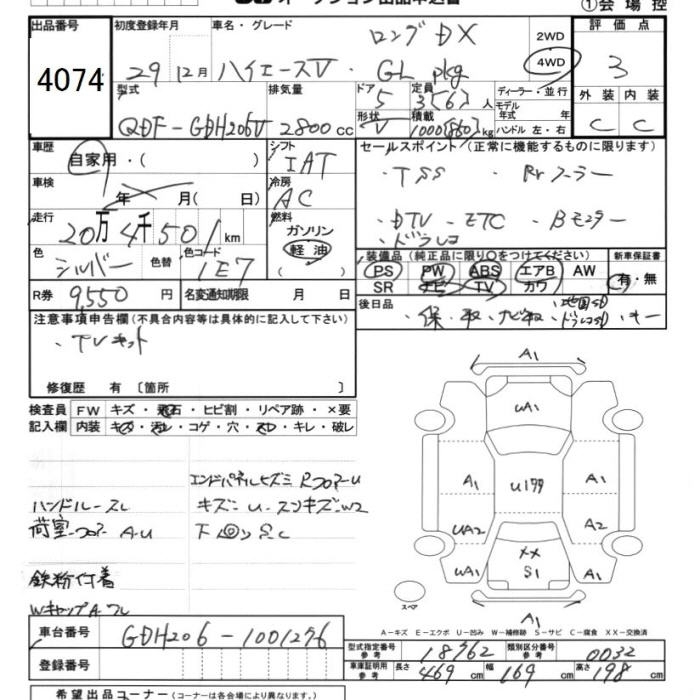 ①会場控
出品番号 初度登録年月 車名・グレード 評価点
4074
ロングDX
29年12月 ハイエースV・ GL pkg
2WD
4WD
3
型式 排気量 ドア 定員 ディーラー・並行
5 3(6)人 モデル 年式 年
外装 内装
QDF-GDH206V 2800cc
形状 積載 ハンドル 左・右
V 1000(850)kg
C C
車歴 自家用・( )
シフト IAT
セールスポイント(正常に機能するものに限ります)
・TSS ・Rrクーラー
車検 年 月( 日)
冷房 AC
・DTV・ETC ・Bモニター
・ドラレコ
走行 20万4千501km
燃料 ガソリン
軽油
( )
色 シルバー 色替 色コード 1E7
装備品(純正品に限り○をつけてください) 新車保証書
PS PW ABS エアB AW 有・無
SR ナビ TV カワ
R券 9,550円 名変通知期限 月 日
後日品
・保・取・ナビ取・地図SD・ドラレコSD・キー
注意事項申告欄(不具合内容等は具体的に記入して下さい)
・TVキット
修復歴 有〔箇所 〕
検査員 FW キズ・飛石・ヒビ割・リペア跡・×要
記入欄 内装 キズ・汚レ・コゲ・穴・スレ・キレ・破レ
エンドパネルヒズミ RフロアーU
ハンドルースレ キズニU
荷室フロアーA・U 下回りS.C
鉄粉付着
WキャップA
A1
UA1
A1 U177 A1
UA2 A2
XX
UA1 S1 A1
スペア A1
A-キズ E-エクボ U-凹み W-補修跡 S-サビ C-腐食 XX-交換済
車台番号 GDH206-1001276
登録番号
型式指定番号 参考 18762 類別区分番号 参考 0032
車庫証明用 参考 長さ 469cm 幅 169cm 高さ 198cm
希望出品コーナー(コーナーは各会場により異なります。)